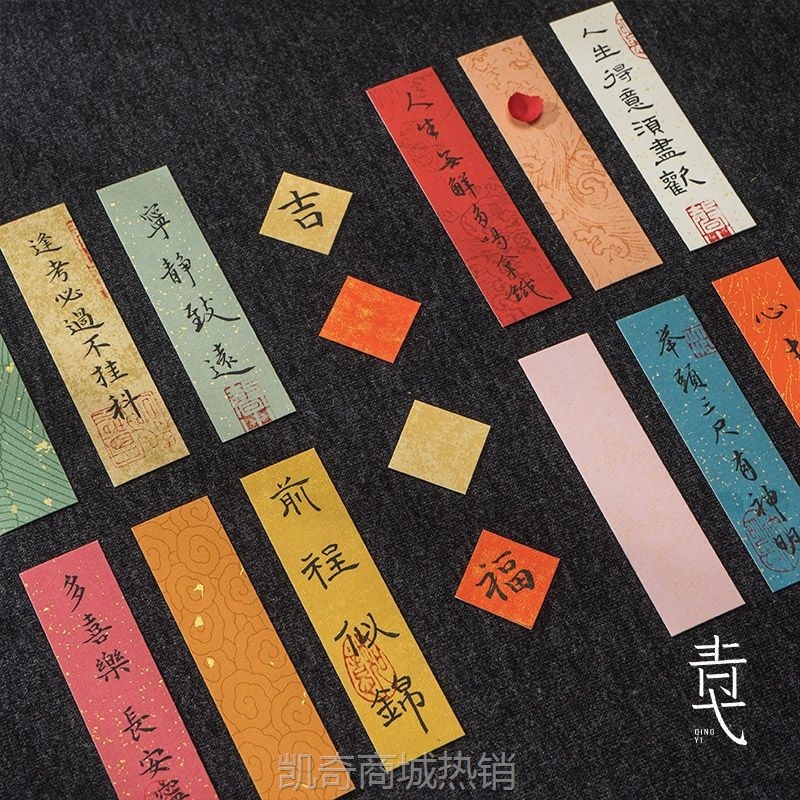 人生得意須盡歡
人生無解多喝拿鐵
寧靜致遠
逢考必過不挂科
吉
心
舉頭三尺有神明
前程似錦
福
多喜樂 長安寧
青弋
QING
YI
凯奇商城热销